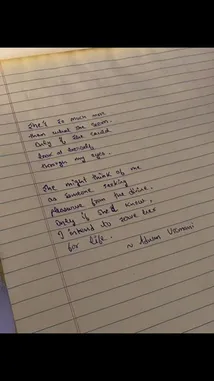 She's so much more
than what she seem.
Only if she could
look at herself,
through my eyes.
She might think of me
as someone seeking
pleasure from the divine.
Only if she knew,
I intend to save her
for life.
~